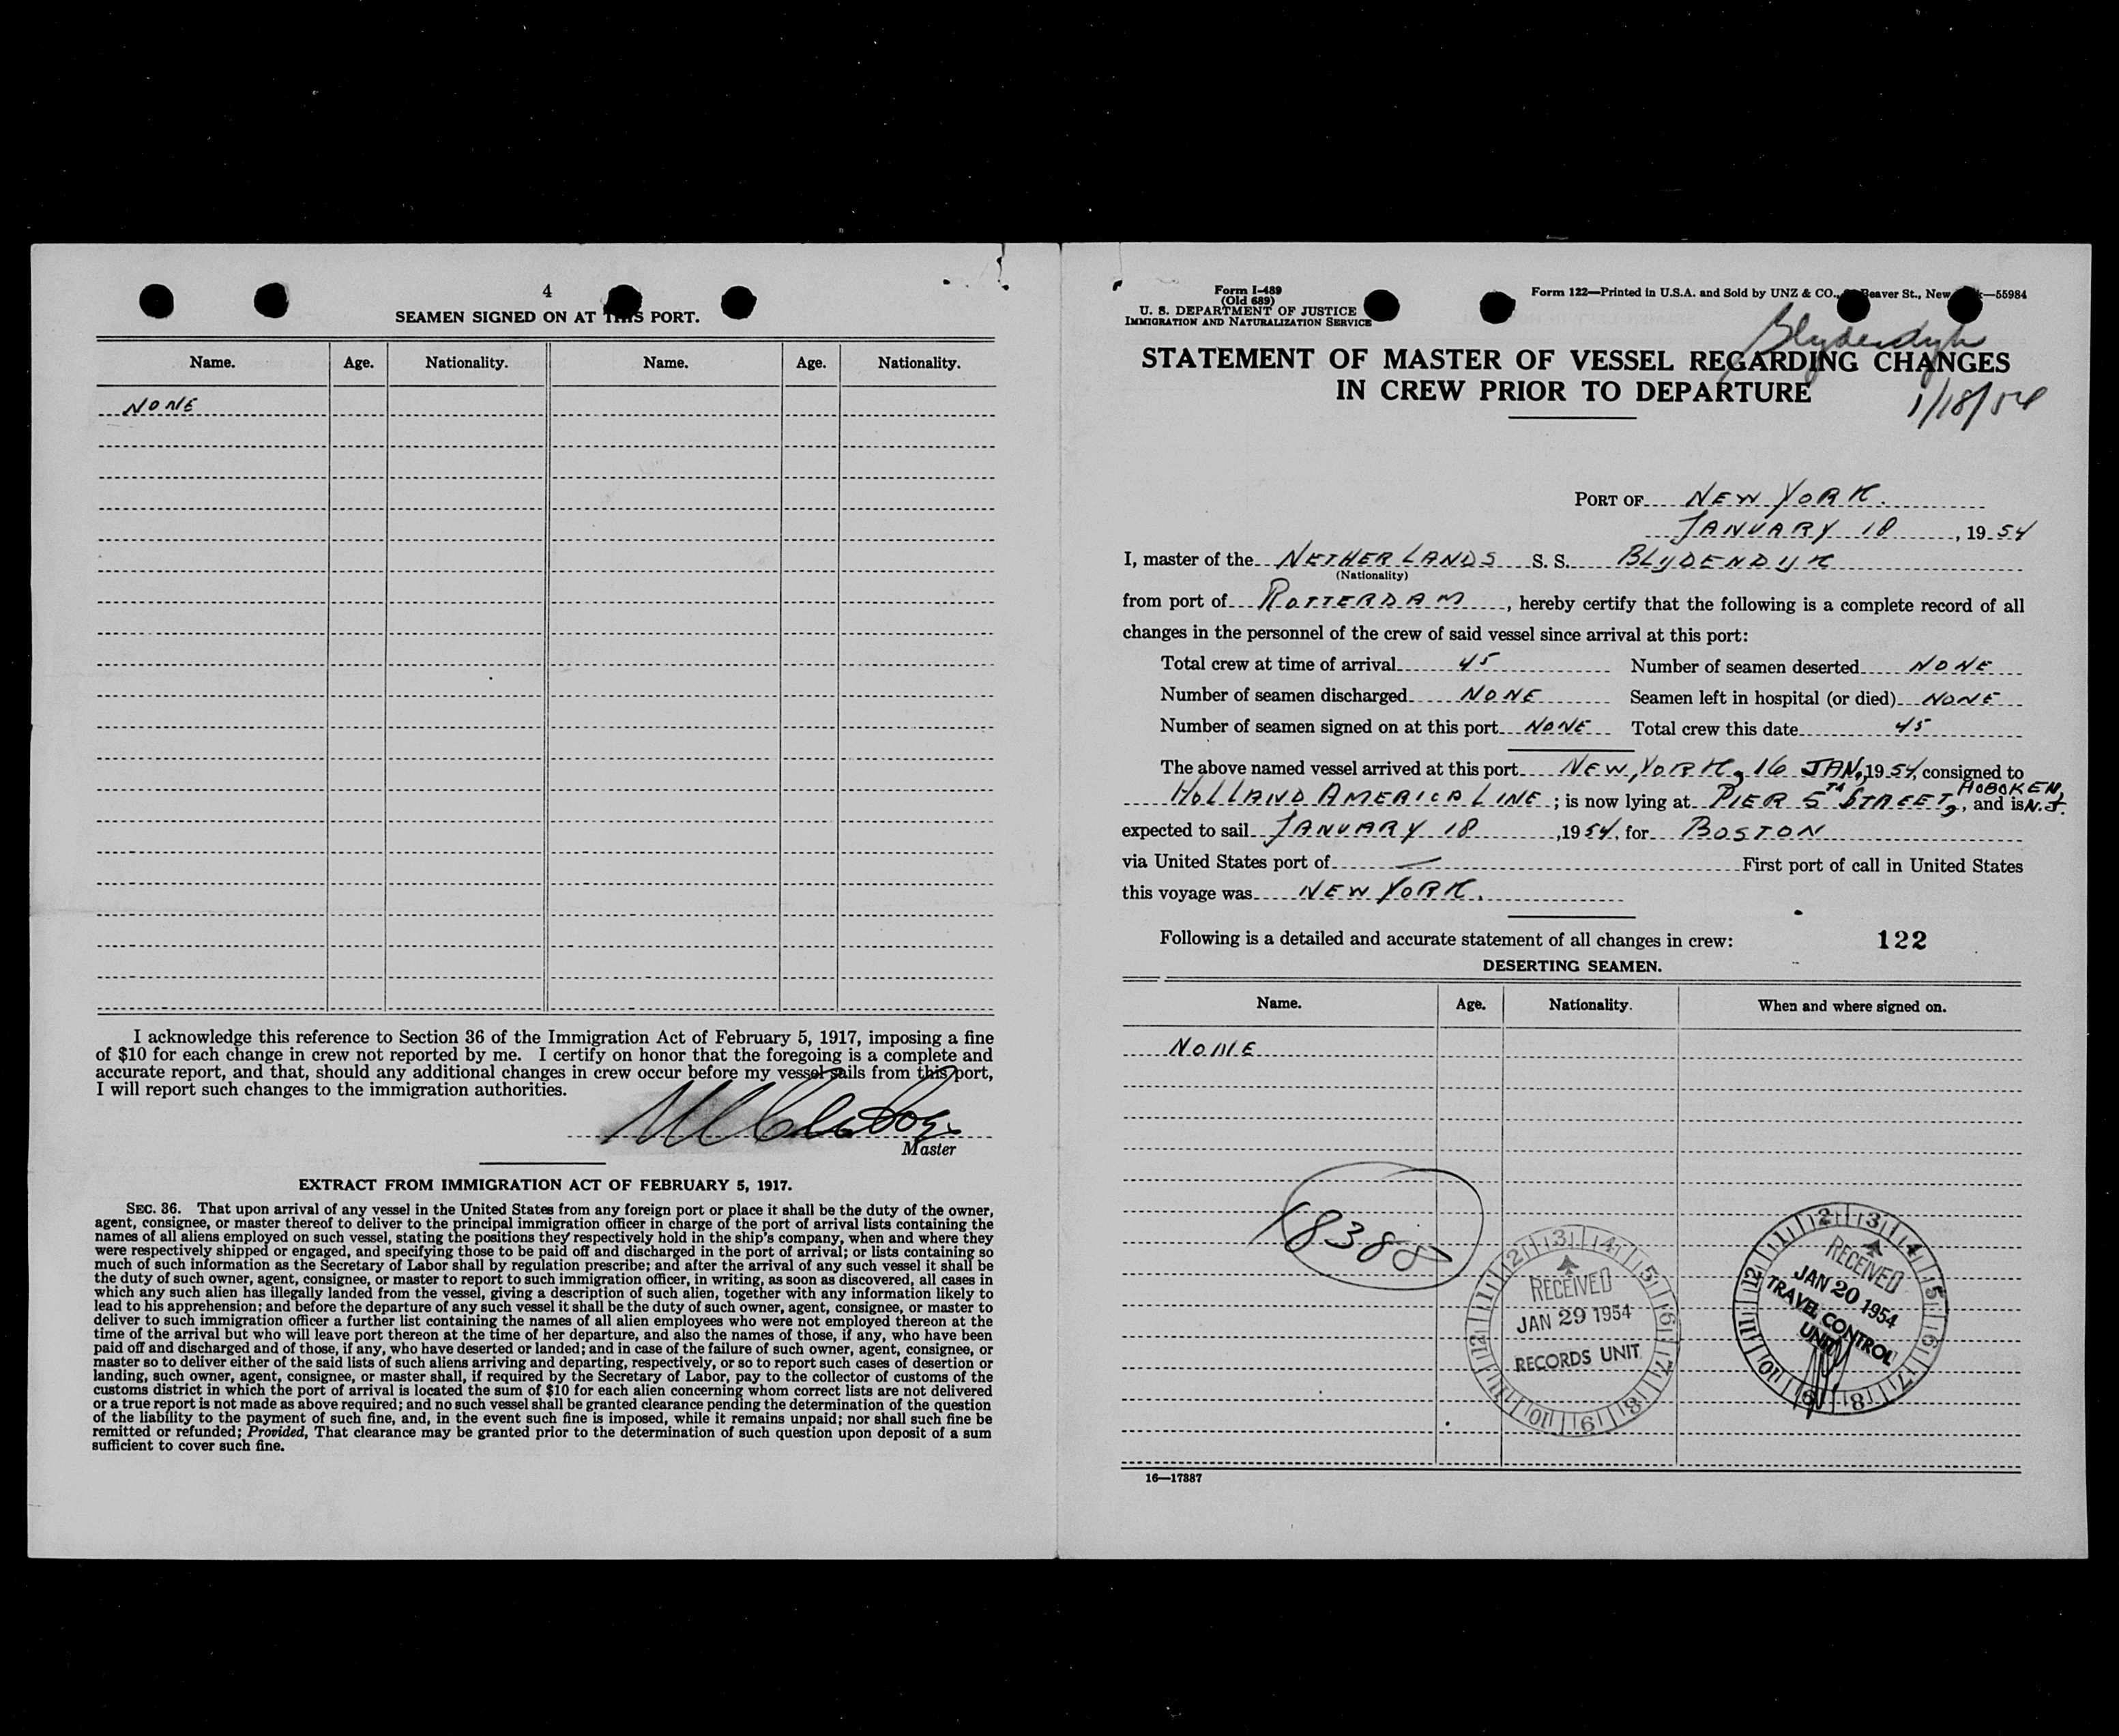 4
SEAMEN SIGNED ON AT THIS PORT.
Name. Age. Nationality. Name. Age. Nationality.
NONE
I acknowledge this reference to Section 36 of the Immigration Act of February 5, 1917, imposing a fine
of $10 for each change in crew not reported by me. I certify on honor that the foregoing is a complete and
accurate report, and that, should any additional changes in crew occur before my vessel sails from this port,
I will report such changes to the immigration authorities.
Master
EXTRACT FROM IMMIGRATION ACT OF FEBRUARY 5, 1917.
SEC. 36. That upon arrival of any vessel in the United States from any foreign port or place it shall be the duty of the owner,
agent, consignee, or master thereof to deliver to the principal immigration officer in charge of the port of arrival lists containing the
names of all aliens employed on such vessel, stating the positions they respectively hold in the ship's company, when and where they
were respectively shipped or engaged, and specifying those to be paid off and discharged in the port of arrival; or lists containing so
much of such information as the Secretary of Labor shall by regulation prescribe; and after the arrival of any such vessel it shall be
the duty of such owner, agent, consignee, or master to report to such immigration officer, in writing, as soon as discovered, all cases in
which any such alien has illegally landed from the vessel, giving a description of such alien, together with any information likely to
lead to his apprehension; and before the departure of any such vessel it shall be the duty of such owner, agent, consignee, or master to
deliver to such immigration officer a further list containing the names of all alien employees who were not employed thereon at the
time of the arrival but who will leave port thereon at the time of her departure, and also the names of those, if any, who have been
paid off and discharged and of those, if any, who have deserted or landed; and in case of the failure of such owner, agent, consignee, or
master so to deliver either of the said lists of such aliens arriving and departing, respectively, or so to report such cases of desertion or
landing, such owner, agent, consignee, or master shall, if required by the Secretary of Labor, pay to the collector of customs of the
customs district in which the port of arrival is located the sum of $10 for each alien concerning whom correct lists are not delivered
or a true report is not made as above required; and no such vessel shall be granted clearance pending the determination of the question
of the liability to the payment of such fine, and, in the event such fine is imposed, while it remains unpaid; nor shall such fine be
remitted or refunded; Provided, That clearance may be granted prior to the determination of such question upon deposit of a sum
sufficient to cover such fine.
Form I-489
(Old 689)
U. S. DEPARTMENT OF JUSTICE
IMMIGRATION AND NATURALIZATION SERVICE
Form 122—Printed in U.S.A. and Sold by UNZ & CO., Beaver St., New —55984
Blydendyk
1/18/54
STATEMENT OF MASTER OF VESSEL REGARDING CHANGES
IN CREW PRIOR TO DEPARTURE
PORT OF NEW YORK.
JANUARY 18, 1954
I, master of the NETHERLANDS S. S. BLYDENDYK
(Nationality)
from port of ROTTERDAM, hereby certify that the following is a complete record of all
changes in the personnel of the crew of said vessel since arrival at this port:
Total crew at time of arrival 45 Number of seamen deserted NONE
Number of seamen discharged NONE Seamen left in hospital (or died) NONE
Number of seamen signed on at this port NONE Total crew this date 45
The above named vessel arrived at this port NEW YORK, 16 JAN, 1954, consigned to
HOLLAND AMERICA LINE; is now lying at PIER 5TH STREET, HOBOKEN, N.J., and is
expected to sail JANUARY 18, 1954, for BOSTON
via United States port of — First port of call in United States
this voyage was NEW YORK.
Following is a detailed and accurate statement of all changes in crew: 122
DESERTING SEAMEN.
Name. Age. Nationality. When and where signed on.
NONE
18388
RECEIVED
JAN 29 1954
RECORDS UNIT
RECEIVED
JAN 20 1954
TRAVEL CONTROL
UNIT
16—17887